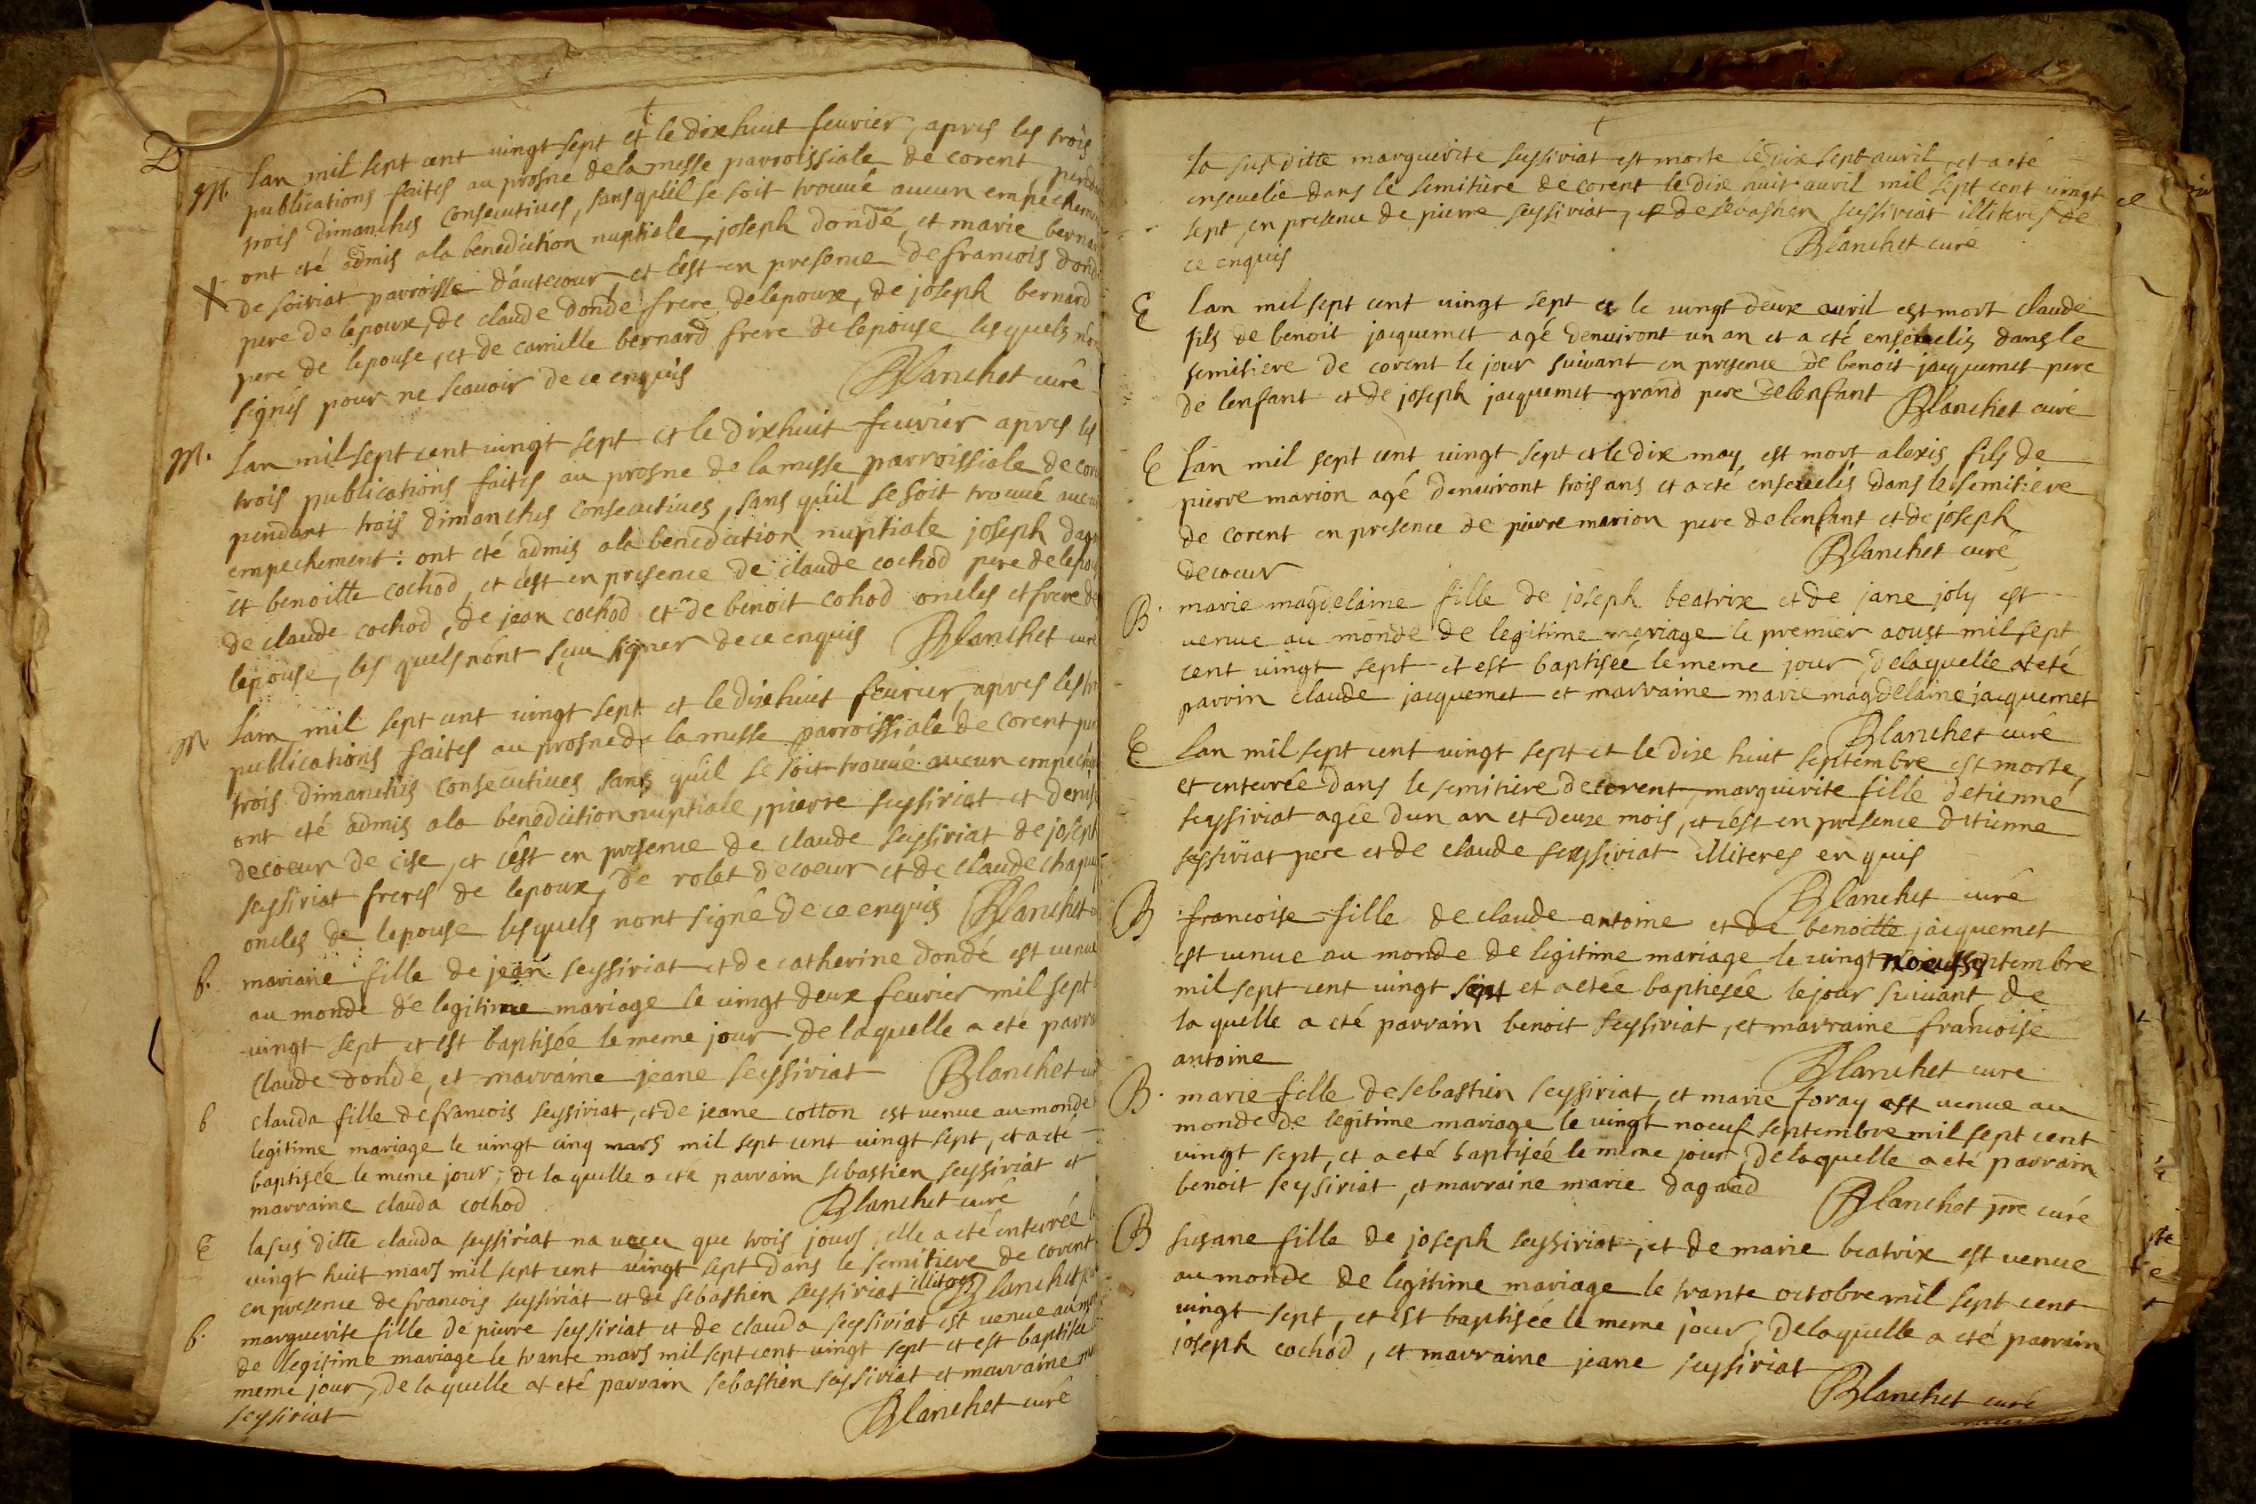 M. Lan mil sept cent vingt sept et le dixhuit feuvrier, apres les trois
publications faites au prosne de la messe parroissiale de corent pend
trois dimanches consecutives, sans quil se soit trouvé aucun empechem
ont eté admis ala benediction nuptiale, joseph dondé, et marie berna
de soiriat parroisse dautecour et cest en presence de francois dond
pere de lepoux, de claude dondé frere de lepoux, de joseph bernard
pere de lepouse, et de camille bernard frere de lepouse lesquels non
signés pour ne scavoir de ce enquis Blanchet curé
M. Lan mil sept cent vingt sept et le dixhuit feuvrier apres les
trois publications faites au prosne de la messe parroissiale de coren
pendant trois dimanches consecutives, sans quil se soit trouvé aucu
empechement : ont eté admis ala benediction nuptiale joseph dag
et benoitte cochod, et cest en presence de claude cochod pere de lepou
de claude cochod, de jean cochod et de benoit cohod oncles et frere de
lepouse, les quels nont sceu signer de ce enquis Blanchet curé
M. Lam mil sept cent vingt sept et le dixhuit feuvrier, apres les tr
publications faites au prosne de la messe parroissiale de corent pen
trois dimanches consecutives sans quil se soit trouvé aucun empech
ont eté admis ala benediction nuptiale, pierre seyssiriat et denis
decoeur de cise, et cest en presence de claude seyssiriat de joseph
seyssiriat freres de lepoux, de robet decoeur et de claude chapu
oncles de lepouse lesquels nont signé de ce enquis Blanchet
b. mariane fille de jean seyssiriat et de catherine dondé est venue
au monde de legitime mariage le vingt deux feuvrier mil sept
vingt sept et est baptisée le meme jour, de laquelle a eté parra
claude dondé, et marraine jeane seyssiriat Blanchet cu
b clauda fille de francois seyssiriat, et de jeane cotton est venue au monde
legitime mariage le vingt cinq mars mil sept cent vingt sept, et a eté
baptisée le meme jour, de la quelle a eté parrain sebastien seyssiriat et
marraine clauda cochod Blanchet curé
E la sus ditte clauda seyssiriat na vecu que trois jours, elle a eté enterrée l
vingt huit mars mil sept cent vingt sept dans le semitiere de corent
en presence de francois seyssiriat et de sebastien seyssiriat illiteres Blanchet
b. marguerite fille de pierre seyssiriat et de clauda seyssiriat est venue au mon
de legitime mariage le trante mars mil sept cent vingt sept et est baptisée
meme jour, de la quelle at eté parrain sebastien seyssiriat et marraine
seyssiriat Blanchet curé
la sus ditte marguerite seyssiriat est morte le dix sept avril, et a eté
ensevelie dans le semitiere de corent le dix huit avril mil sept cent vingt
sept, en presence de pierre seyssiriat, et de sebastien seyssiriat illiteres de
ce enquis Blanchet curé
E Lan mil sept cent vingt sept et le vingt deux avril est mort claude
fils de benoit jacquemet agé denviront un an et a eté ensevelis dans le
semitiere de corent le jour suivant en presence de benoit jacquemet pere
de lenfant et de joseph jacquemet grand pere de lenfant Blanchet curé
E Lan mil sept cent vingt sept et le dix may est mort alexis fils de
pierre marion agé denviront trois ans et a eté ensevelis dans le semitiere
de corent en presence de pierre marion pere de lenfant et de joseph
decoeur Blanchet curé
B. marie magdelaine fille de joseph beatrix et de jane joly est
venue au monde de legitime mariage le premier aoust mil sept
cent vingt sept et est baptisée le meme jour, de laquelle at eté
parrin claude jacquemet et marraine marie magdelaine jacquemet
Blanchet curé
E Lan mil sept cent vingt sept et le dix huit septembre est morte,
et enterrée dans le semitiere de corent, marguerite fille detienne
seyssiriat agée dun an et deux mois, et cest en presence detienne
seyssiriat pere et de claude seyssiriat illiteres enquis
Blanchet curé
B francoise fille de claude antoine et de benoitte jacquemet
est venue au monde de legitime mariage le vingt noeuf septembre
mil sept cent vingt sept et a etée baptisée le jour suivant de
la quelle a eté parrain benoit seyssiriat, et marraine francoise
antoine Blanchet curé
B. marie fille de sebastien seyssiriat, et marie foray est venue au
monde de legitime mariage le vingt noeuf septembre mil sept cent
vingt sept, et a eté baptisée le meme jour, de laquelle a eté parrain
benoit seyssiriat, et marraine marie dagand Blanchet pre curé
B susane fille de joseph seyssiriat, et de marie beatrix est venue
au monde de legitime mariage le trante octobre mil sept cent
vingt sept, et est baptisée le meme jour, de laquelle a eté parrain
joseph cochod, et marraine jeane seyssiriat
Blanchet curé